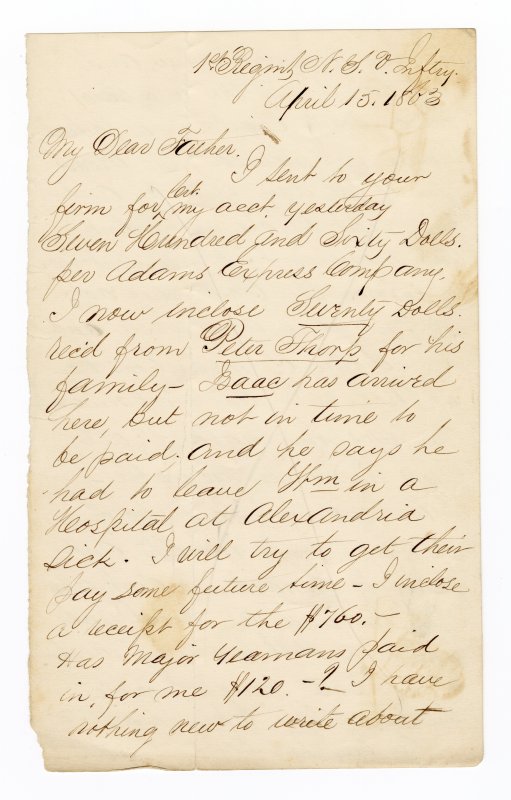 1st Regimt, N. Y. V. Inftry.
April 15. 1863
My Dear Father.
I sent to your
firm for my acct. yesterday
Seven Hundred and Sixty Dolls.
per Adams Express Company.
I now inclose Twenty Dolls.
rec'd from Peter Thorp for his
family — Isaac has arrived
here, but not in time to
be paid. and he says he
had to leave Wm in a
Hospital at Alexandria
Sick. I will try to get their
pay some future time — I inclose
a receipt for the $760.—
Has Major Yeamans paid
in, for me $120.—? I have
nothing new to write about